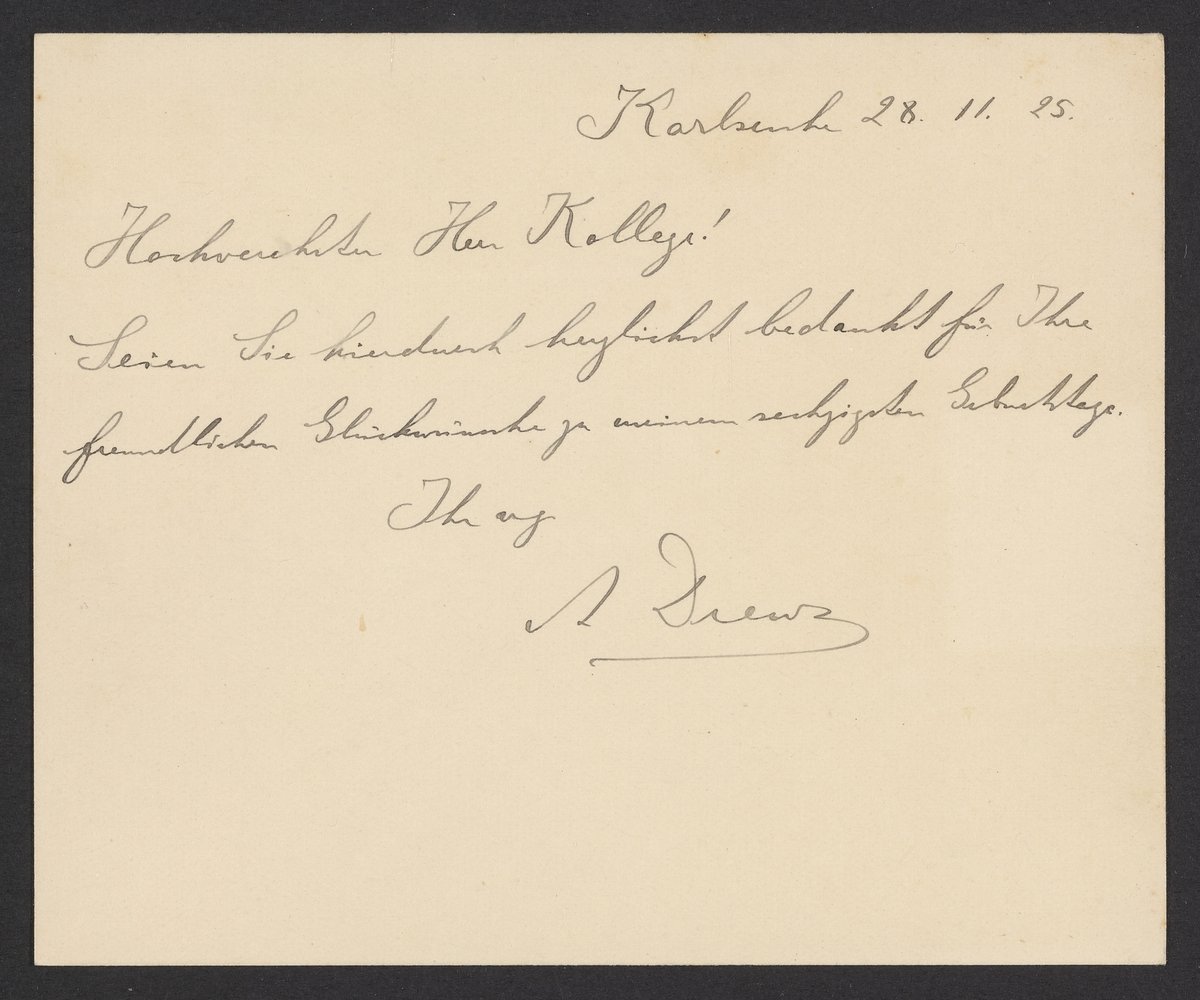 Karlsruhe 28. 11. 25.
Hochverehrter Herr Kollege!
Seien Sie hierdurch herzlichst bedankt für Ihre
freundlichen Glückwünsche zu meinem sechzigsten Geburtstage.
Ihr erg
A Drews